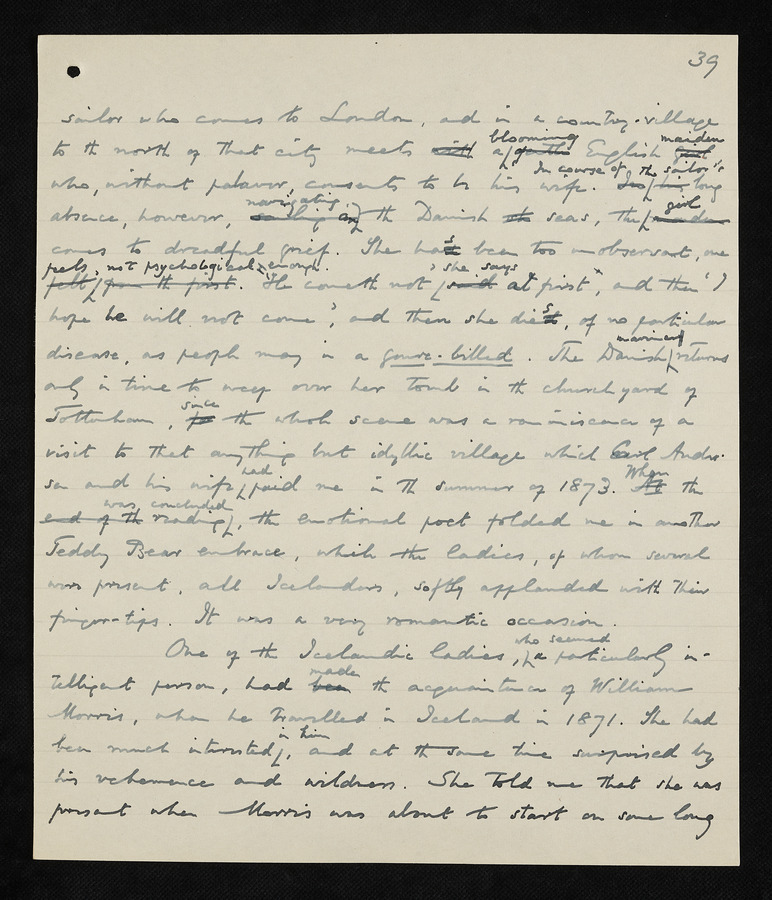 39
sailor who comes to London, and in a country-village
blooming maiden
to the north of that city meets with a gentle English girl
In course of the sailor's
who, without palaver, consents to be his wife. long
navigating girl
absence, however, the Danish seas, the maiden
comes to dreadful grief. She has been too unobservant, one
feels; not psychological enough. she says
felt from the first. 'He cometh not', said at first, and then 'I
hope he will not come', and then she dies, of no particular
mariner
disease, as people may in a gowre-billed. The Danish returns
only in time to weep over her tomb in the churchyard of
since
Tottenham, for the whole scene was a reminiscence of a
visit to that anything but idyllic village which Carl Ander-
had When
sen and his wife paid me in the summer of 1873. At the
was concluded
end of the reading, the emotional poet folded me in another
Teddy Bear embrace, which the ladies, of whom several
were present, all Icelanders, softly applauded with their
finger-tips. It was a very romantic occasion.
who seemed
One of the Icelandic ladies, a particularly in-
made
telligent person, had been the acquaintance of William
Morris, when he travelled in Iceland in 1871. She had
in him
been much interested, and at the same time surprised by
his vehemence and wildness. She told me that she was
present when Morris was about to start on some long